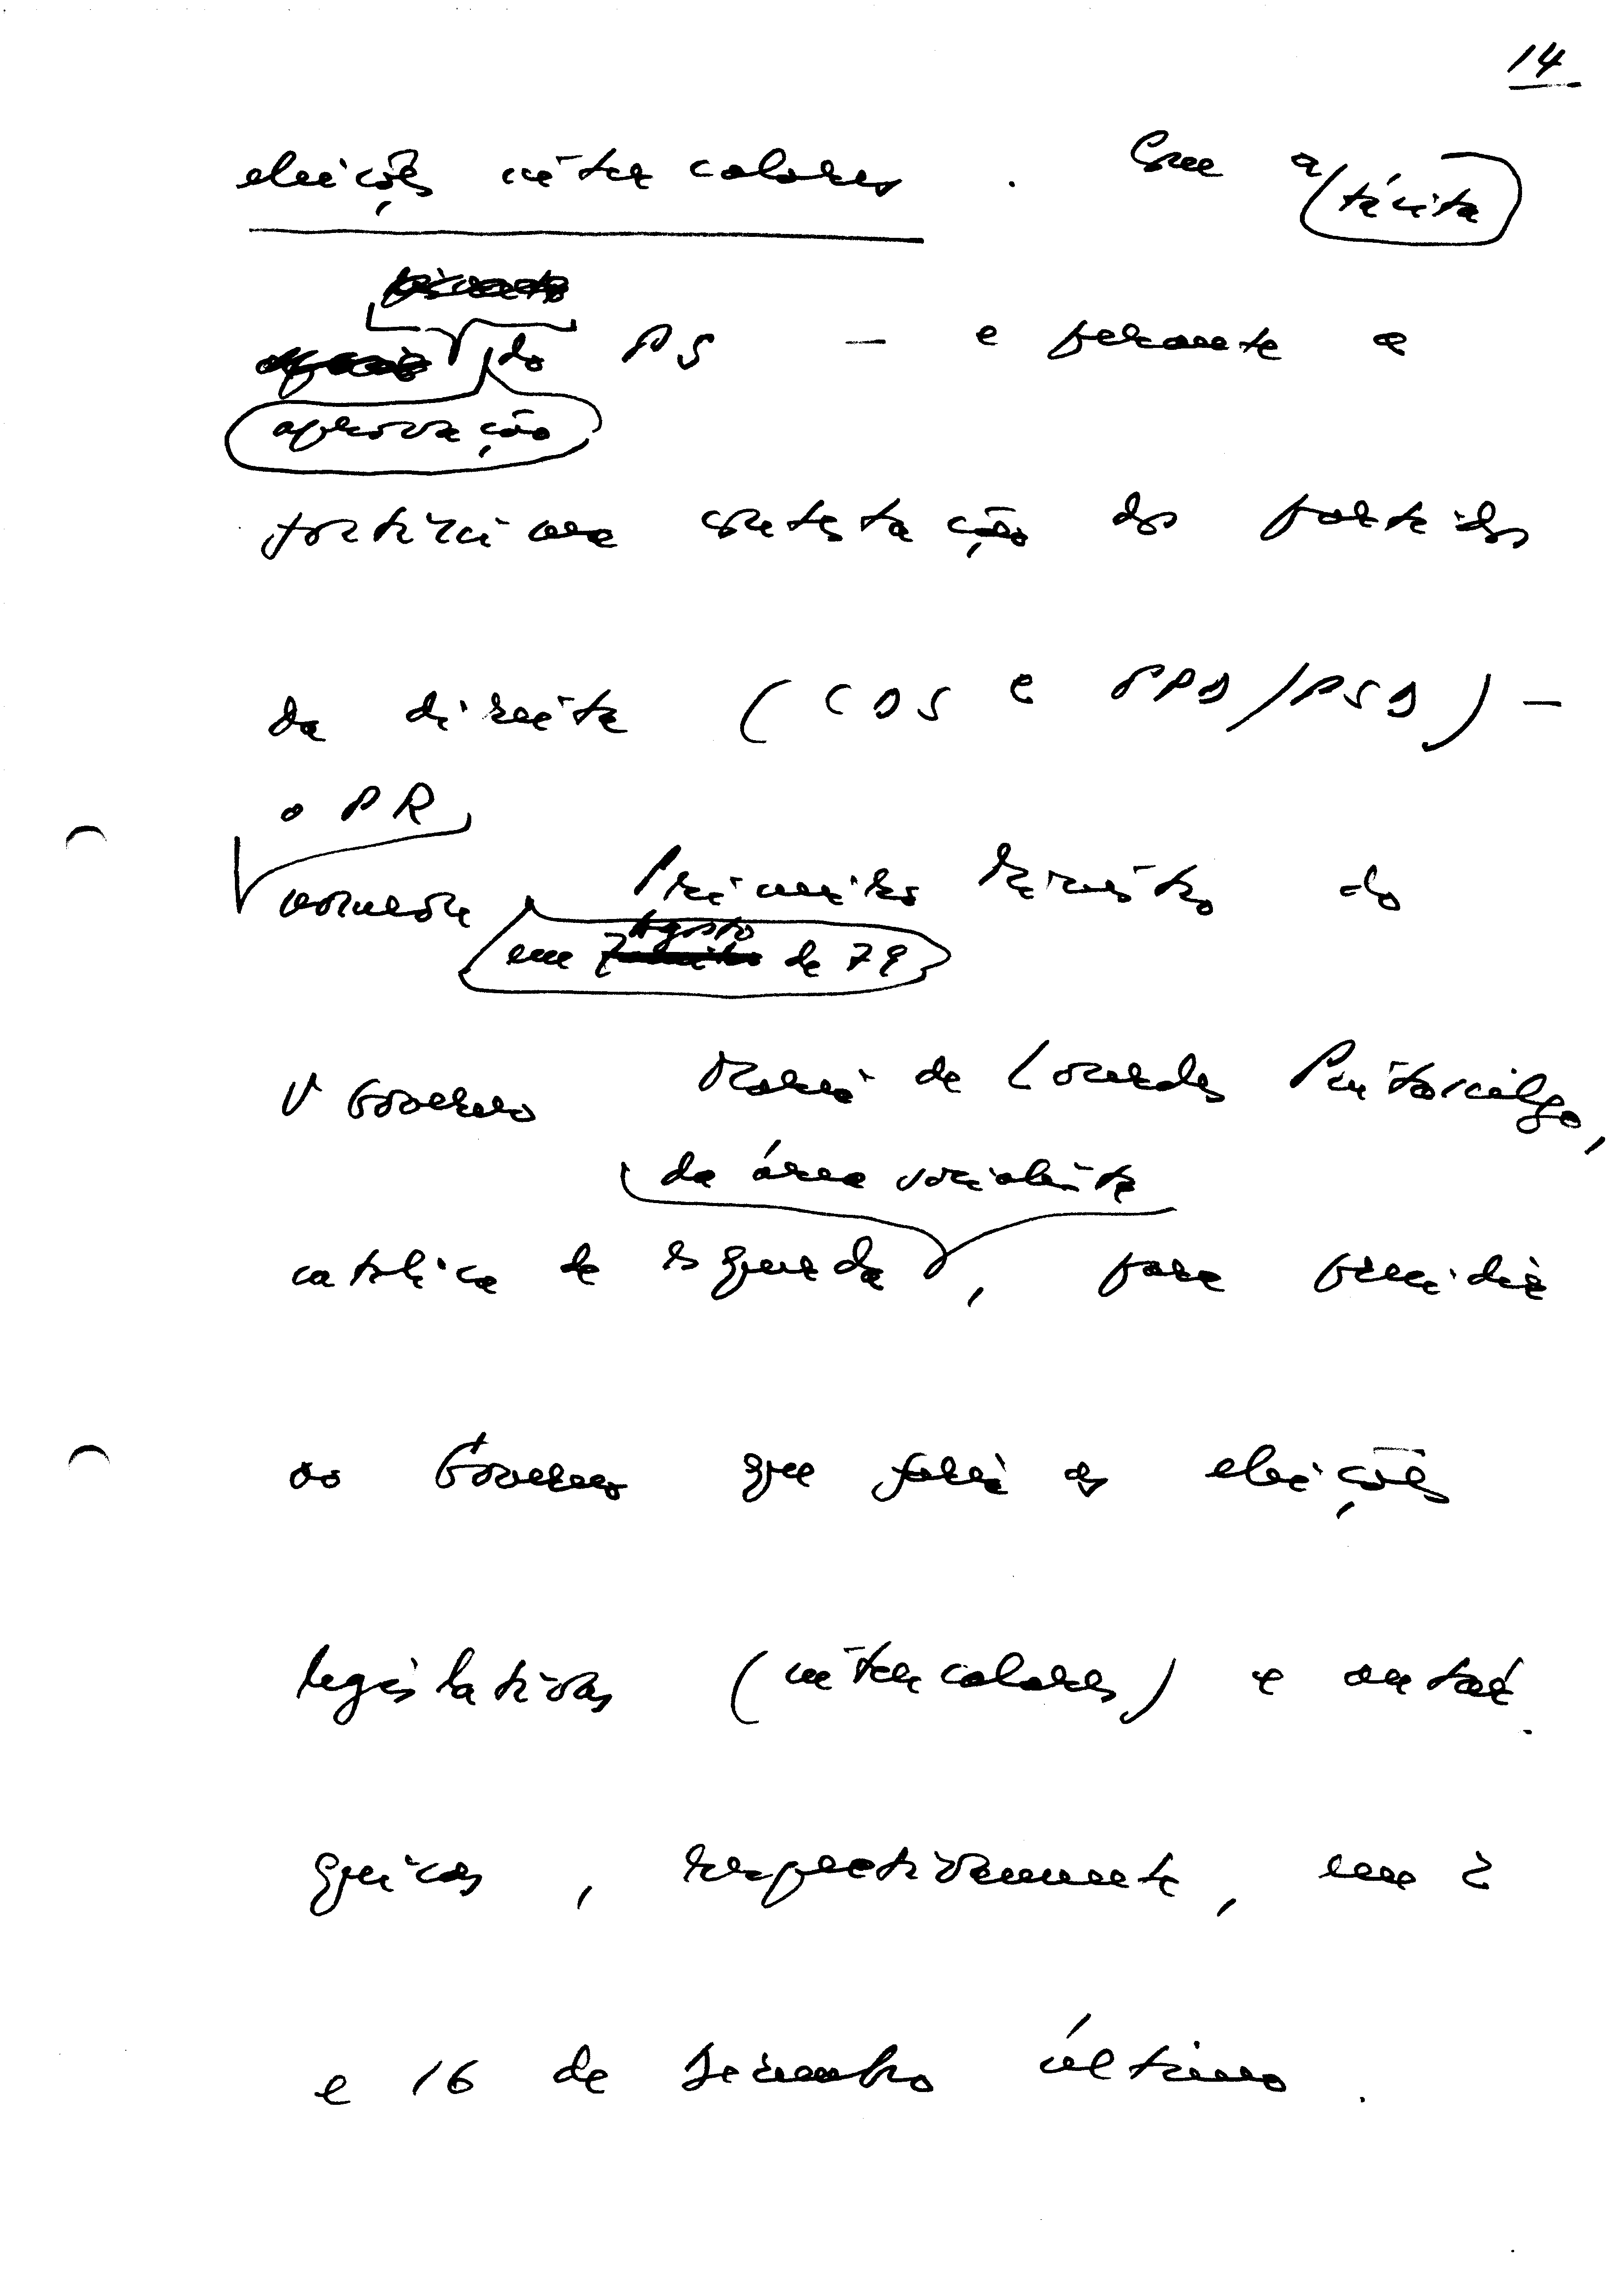 14
eleições intercalares. Com a tácita
aprovação do PS — e perante a
fortíssima contestação dos partidos
da direita (CDS e PPD/PSD) —
o PR
nomeou Primeiro Ministro do
em Agosto de 79
V Governo Maria de Lourdes Pintasilgo,
da área socialista
católica de esquerda, para presidir
ao Governo que fará as eleições
legislativas (intercalares) e autár-
quicas, respectivamente, em 2
e 16 de Dezembro último.